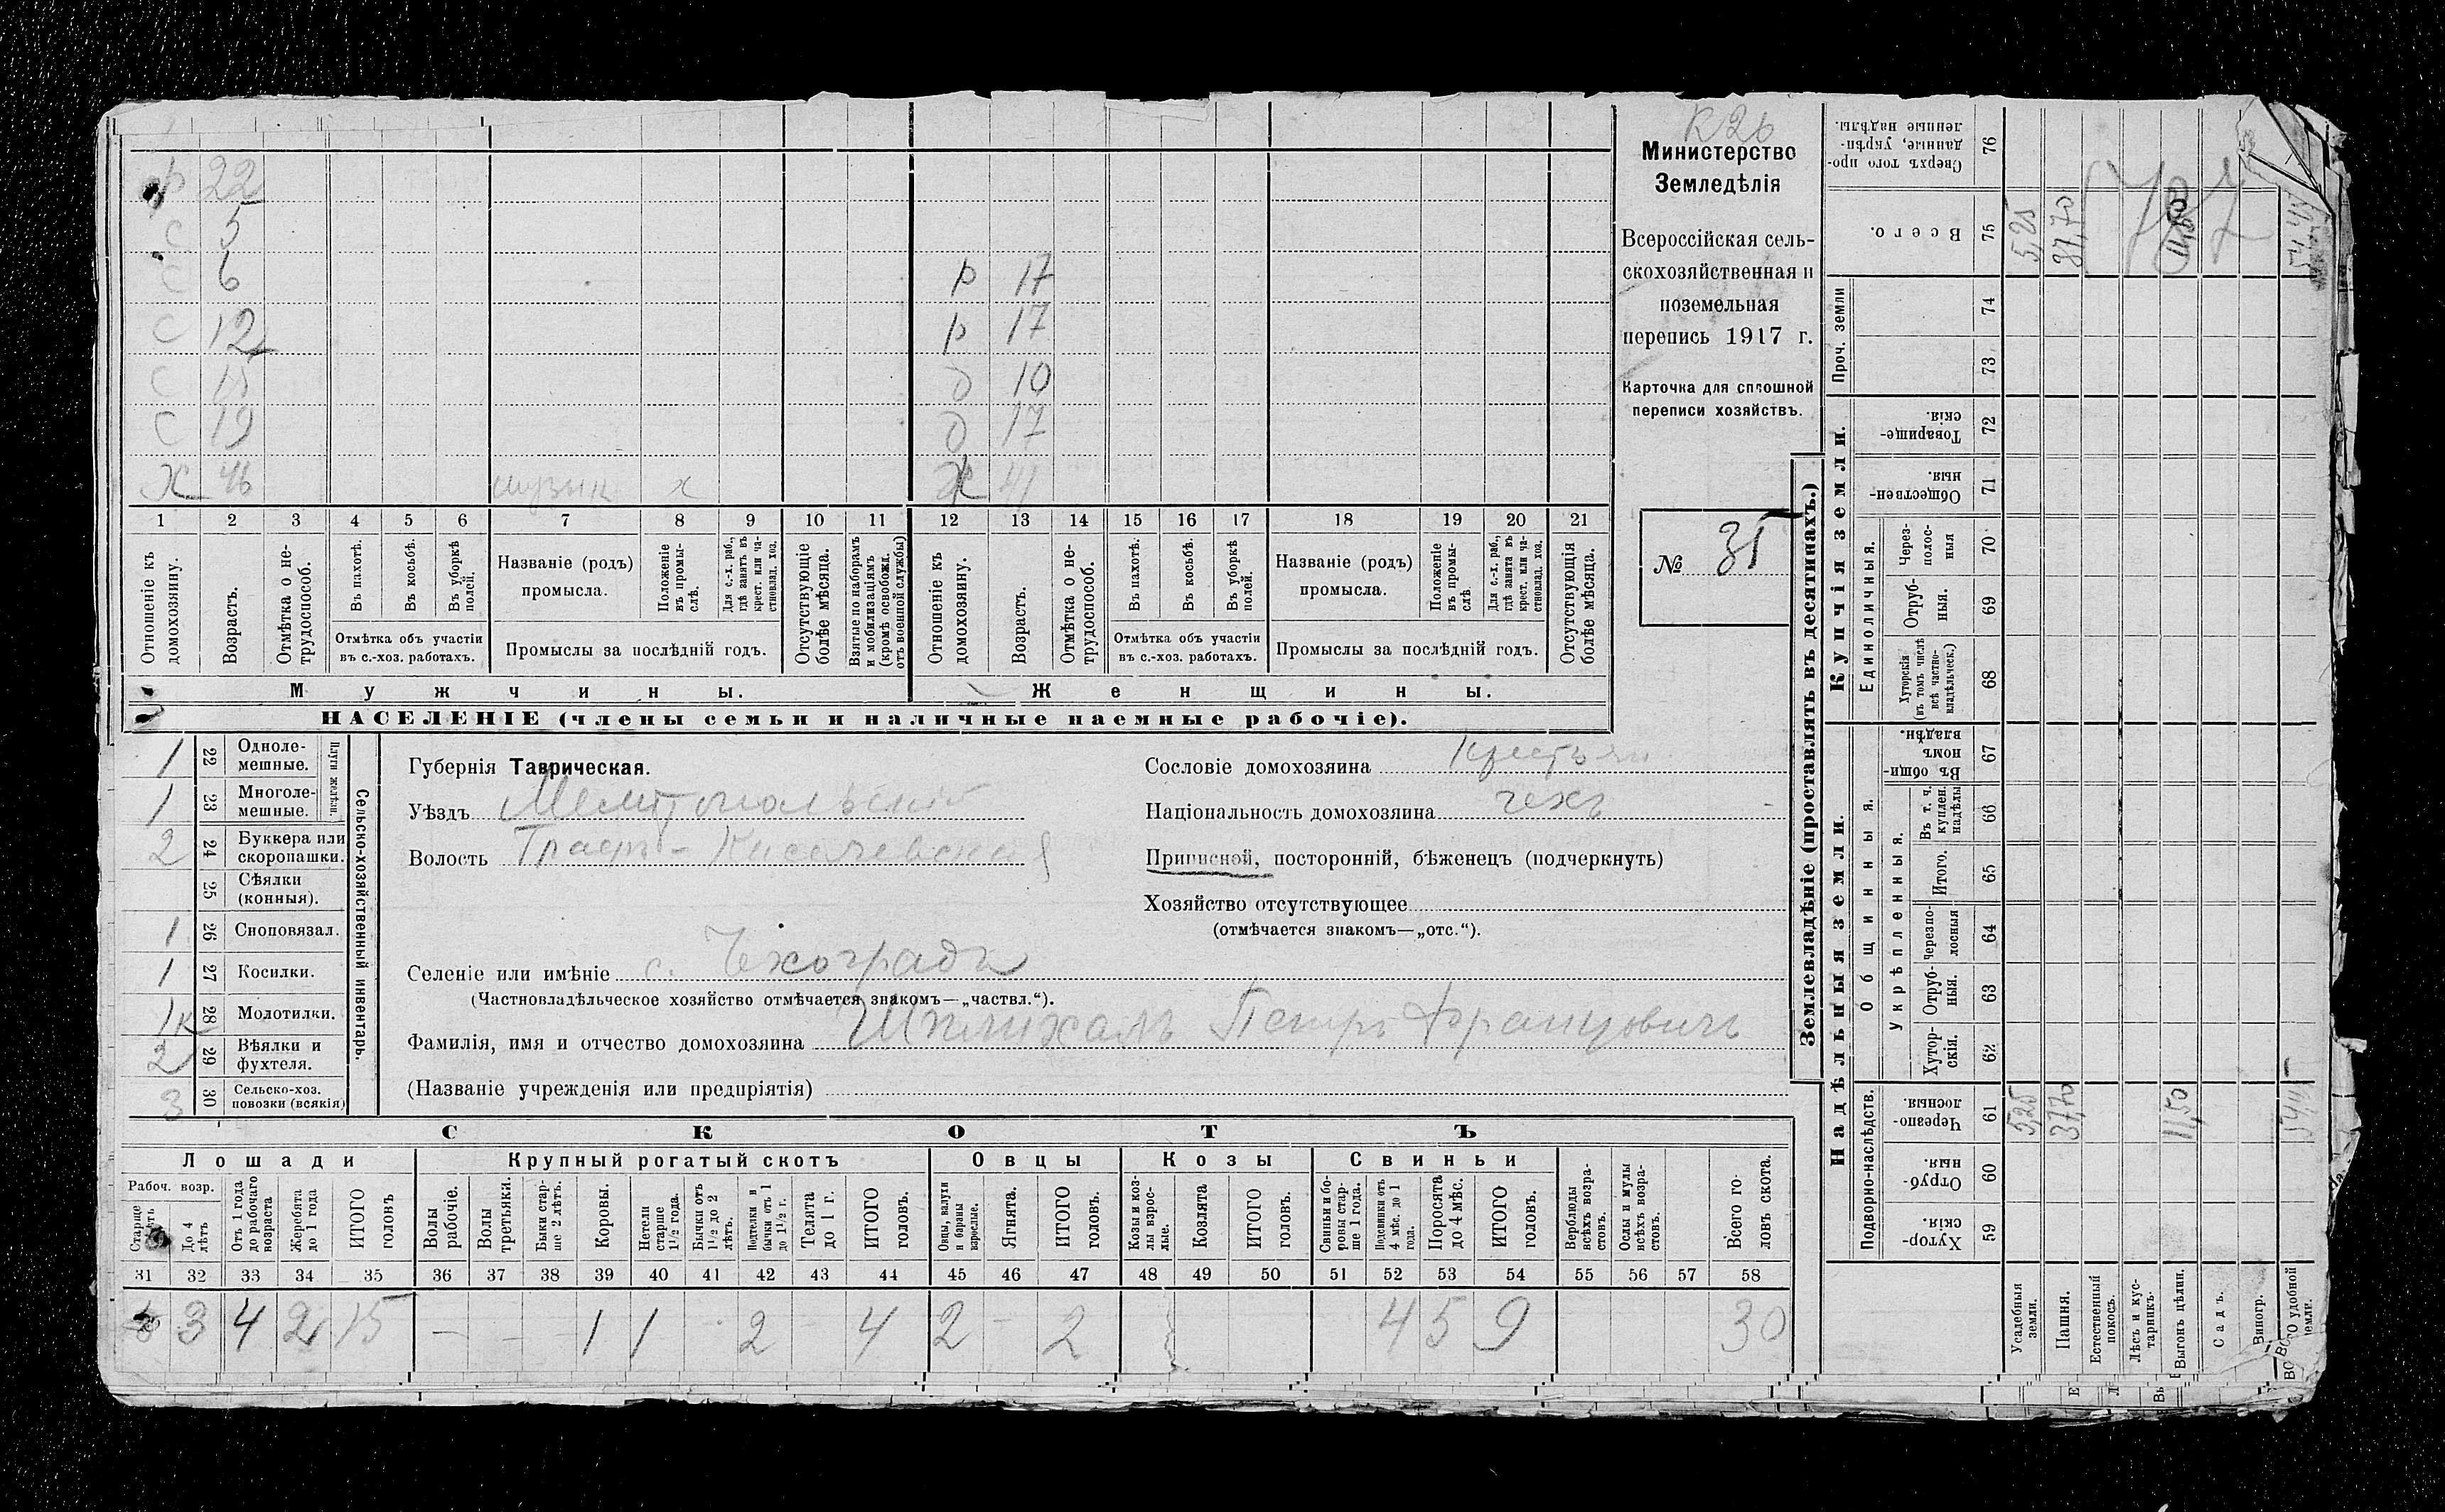 К 26
Министерство
Земледѣлія
Всероссійская сель-
скохозяйственная и
поземельная
перепись 1917 г.
Карточка для сплошной
переписи хозяйствъ.
№ 31
р 22
с 5
с 6 р 17
с 12 р 17
с 15 д 10
с 19 д 17
х 46 х х 41
1 2 3 4 5 6 7 8 9 10 11 12 13 14 15 16 17 18 19 20 21
Отношеніе къ домохозяину.
Возрастъ.
Отмѣтка о не-трудоспособ.
Въ пахотѣ.
Въ косьбѣ.
Въ уборкѣ полей.
Отмѣтка объ участіи
въ с.-хоз. работахъ.
Названіе (родъ)
промысла.
Положеніе въ промы-слѣ.
Для с.-х. раб., гдѣ занятъ въ крест. или ча-стновлад. хоз.
Промыслы за послѣдній годъ.
Отсутствующіе болѣе мѣсяца.
Взятые по наборамъ и мобилизаціямъ (кромѣ освобожд. отъ военной службы)
Отношеніе къ домохозяину.
Возрастъ.
Отмѣтка о не-трудоспособ.
Въ пахотѣ.
Въ косьбѣ.
Въ уборкѣ полей.
Отмѣтка объ участіи
въ с.-хоз. работахъ.
Названіе (родъ)
промысла.
Положеніе въ промы-слѣ.
Для с.-х. раб., гдѣ занята въ крест. или ча-стновлад. хоз.
Промыслы за послѣдній годъ.
Отсутствующія болѣе мѣсяца.
Мужчины. Женщины.
НАСЕЛЕНІЕ (члены семьи и наличные наемные рабочіе).
1 22 Одноле-мешные.
1 23 Многоле-мешные.
Плуги желѣзн.
2 24 Буккера или скоропашки.
25 Сѣялки (конныя).
1 26 Сноповязал.
1 27 Косилки.
1к 28 Молотилки.
2 29 Вѣялки и фухтеля.
3 30 Сельско-хоз. повозки (всякія)
Сельско-хозяйственный инвентарь.
Губернія Таврическая.
Уѣздъ Мелитопольскій
Волость Графъ-Киселевская
Сословіе домохозяина Крестьян
Національность домохозяина чехъ
Приписной, посторонній, бѣженецъ (подчеркнуть)
Хозяйство отсутствующее
(отмѣчается знакомъ—„отс.“).
Селеніе или имѣніе с. Чехоградъ
(Частновладѣльческое хозяйство отмѣчается знакомъ—„частвл.“).
Фамилія, имя и отчество домохозяина Шплихалъ Петръ Францовичъ
(Названіе учрежденія или предпріятія)
СКОТЪ
Лошади Крупный рогатый скотъ Овцы Козы Свиньи
Рабоч. возр.
Старше 4 лѣтъ
До 4 лѣтъ
Отъ 1 года до рабочаго возраста
Жеребята до 1 года
ИТОГО головъ
Волы рабочіе.
Волы третьяки.
Быки стар-ше 2 лѣтъ.
Коровы.
Нетели старше 1½ года.
Бычки отъ 1½ до 2 лѣтъ.
Подтелки и бычки отъ 1 до 1½ г.
Телята до 1 г.
ИТОГО головъ.
Овцы, валухи и бараны взрослые.
Ягнята.
ИТОГО головъ.
Козы и коз-лы взрос-лые.
Козлята
ИТОГО головъ.
Свиньи и бо-ровы стар-ше 1 года.
Подсвинки отъ 4 мѣс. до 1 года.
Поросята до 4 мѣс.
ИТОГО головъ.
Верблюды всѣхъ возра-стовъ.
Ослы и мулы всѣхъ возра-стовъ.
Всего го-ловъ скота.
31 32 33 34 35 36 37 38 39 40 41 42 43 44 45 46 47 48 49 50 51 52 53 54 55 56 57 58
6 3 4 2 15 – – 1 1 – 2 – 4 2 – 2 4 5 9 30
Землевладѣніе (проставлять въ десятинахъ.)
Надѣльныя земли. Купчія земли.
Подворно-наслѣдств.
Общинныя.
Укрѣпленныя.
Единоличныя.
Проч. земли
Сверхъ того про-данные, укрѣп-ленные надѣлы. 76
Всего. 75 5,25 37,70 11,50 54,45
74
73
Товарище-скія. 72
Обществен-ныя 71
Через-полос-ныя 70
Отруб-ныя. 69
Хуторскія (въ томъ числѣ всѣ частно-владѣльческ.) 68
Въ общи-номъ владѣн. 67
Въ т. ч. куплен. надѣлы 66
Итого. 65
Черезпо-лосныя 64
Отруб-ныя. 63
Хутор-скія. 62
Черезпо-лосныя. 61 5,25 37,70 11,50 54,45
Отруб-ныя. 60
Хутор-скія. 59
Усадебныя земли.
Пашня.
Естественный покосъ.
Лѣсъ и кус-тарникъ.
Выгонъ цѣлин.
Садъ.
Виногр.
удобной земли.